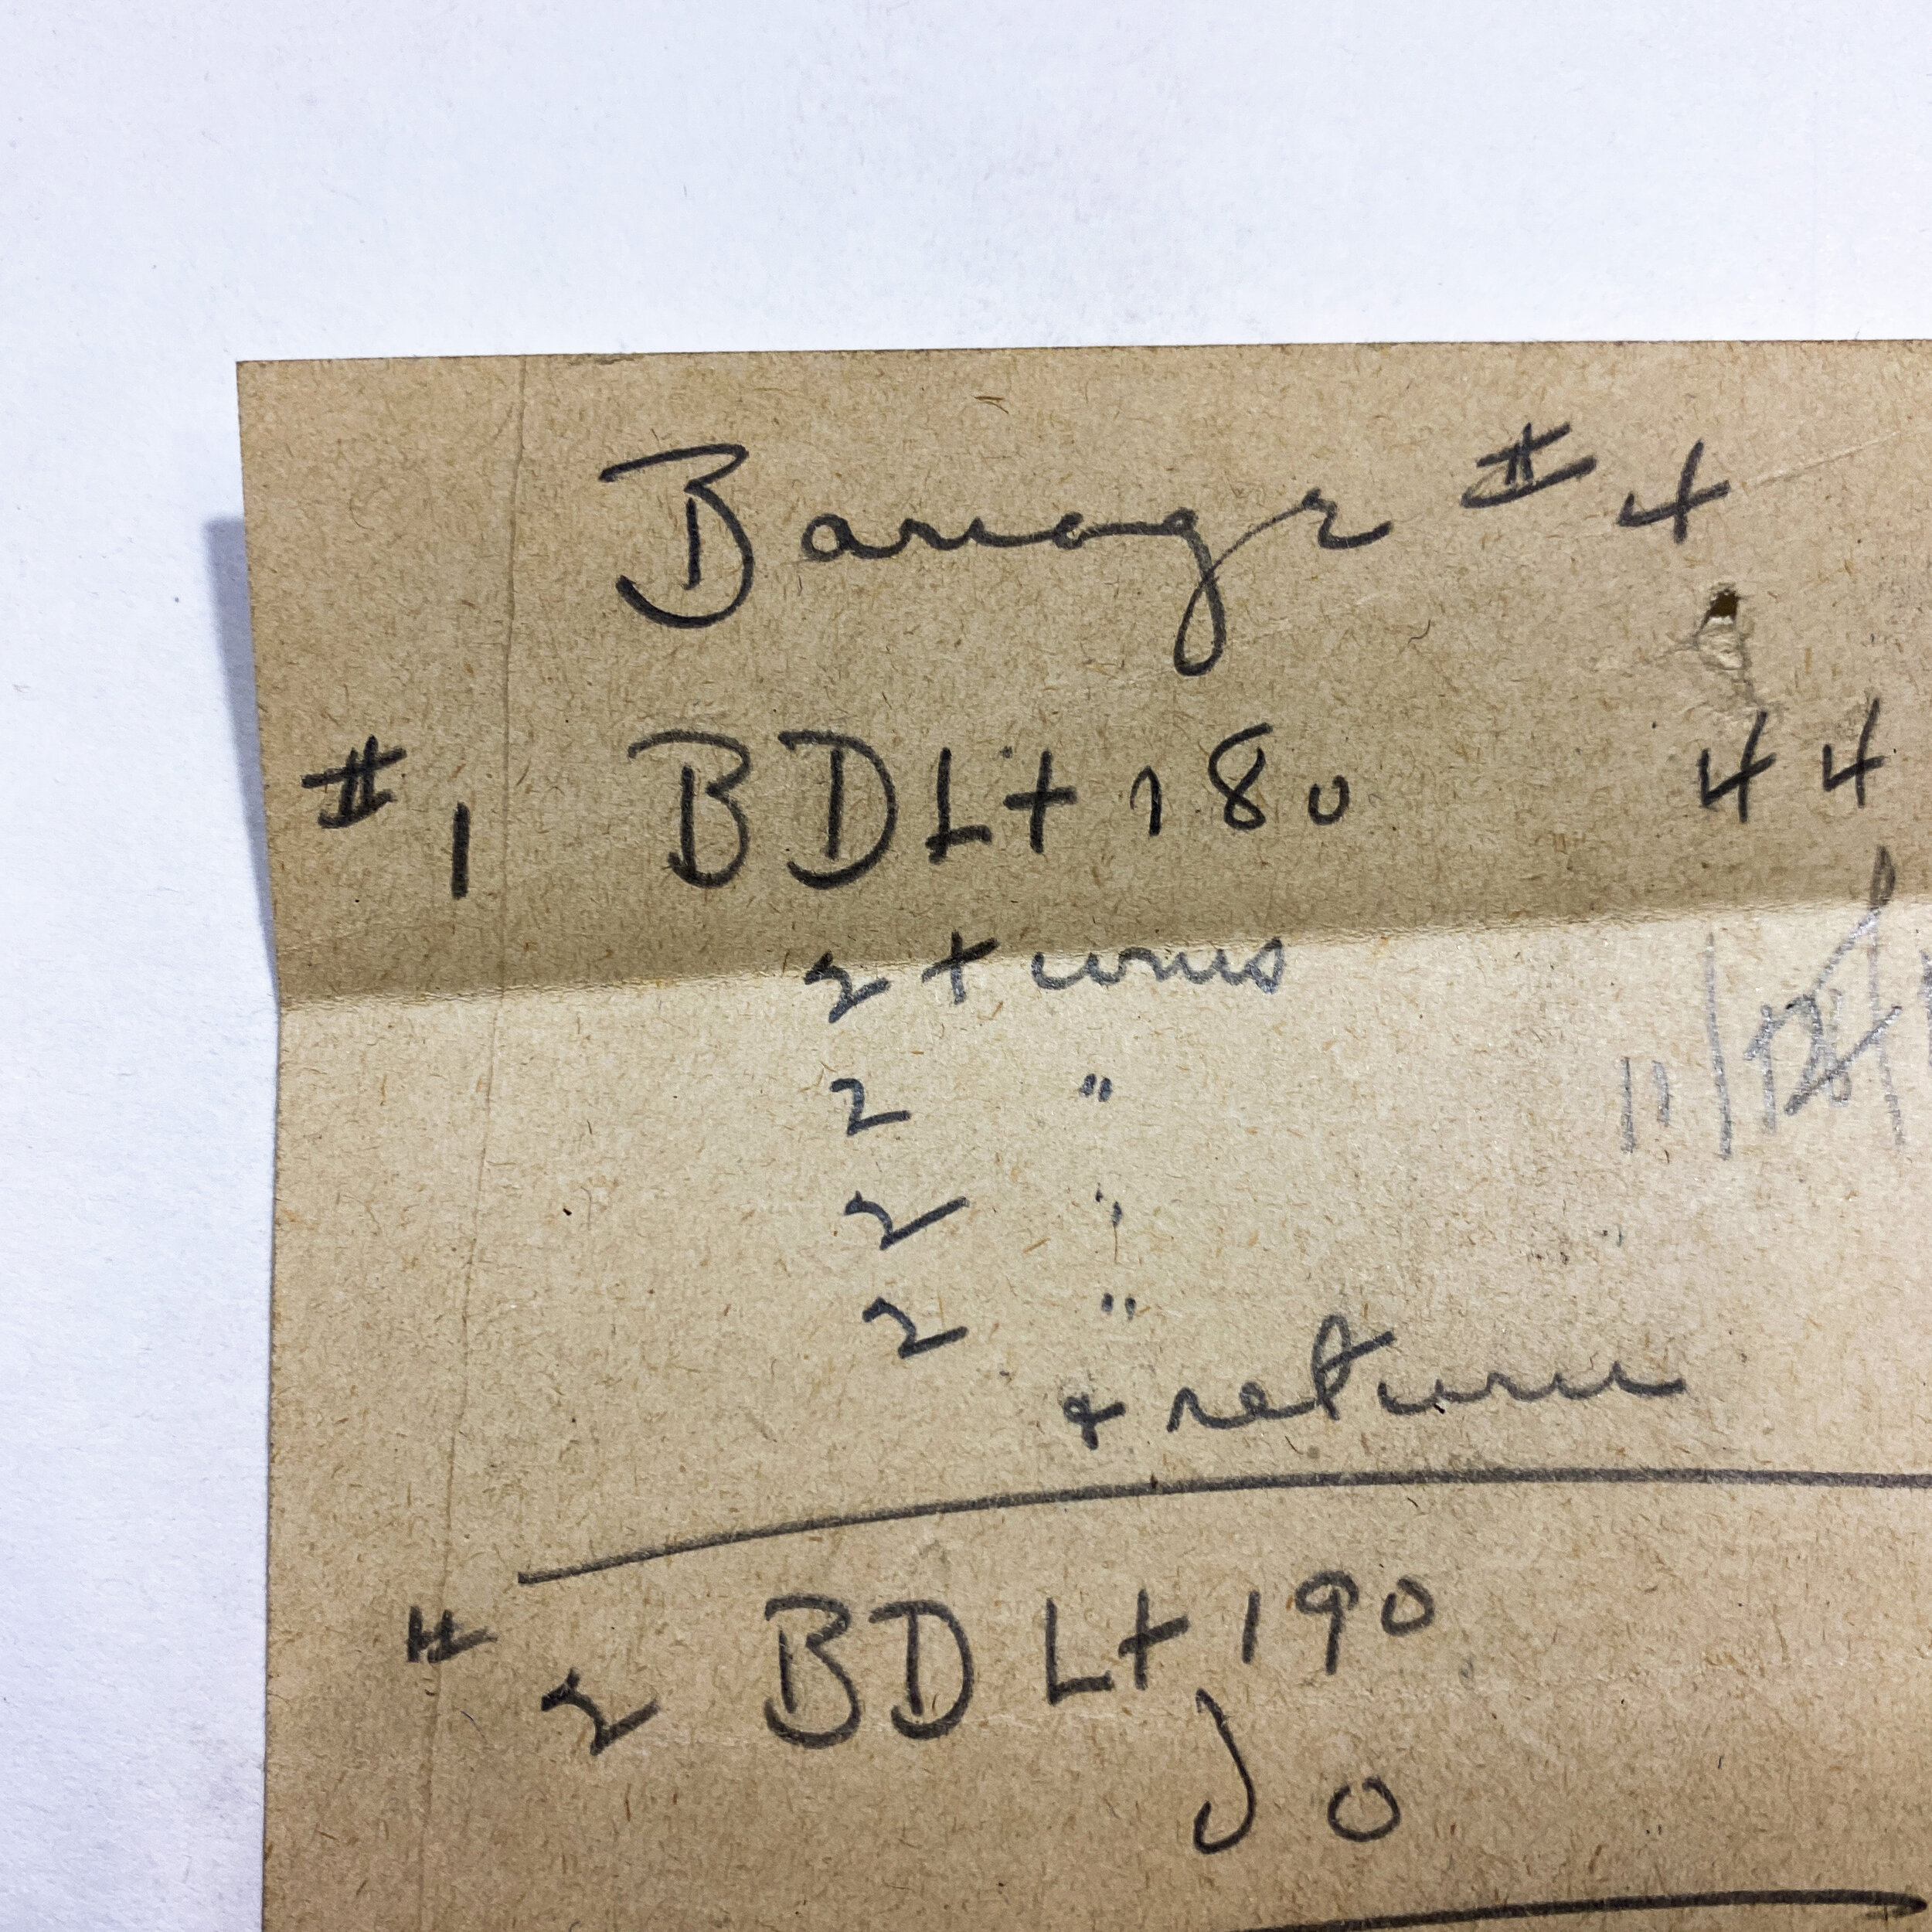 Barrage # 4
#1 BD Lt 180 44
2 turns
2 "
2 "
2 "
& return
#2 BD Lt 190
J O